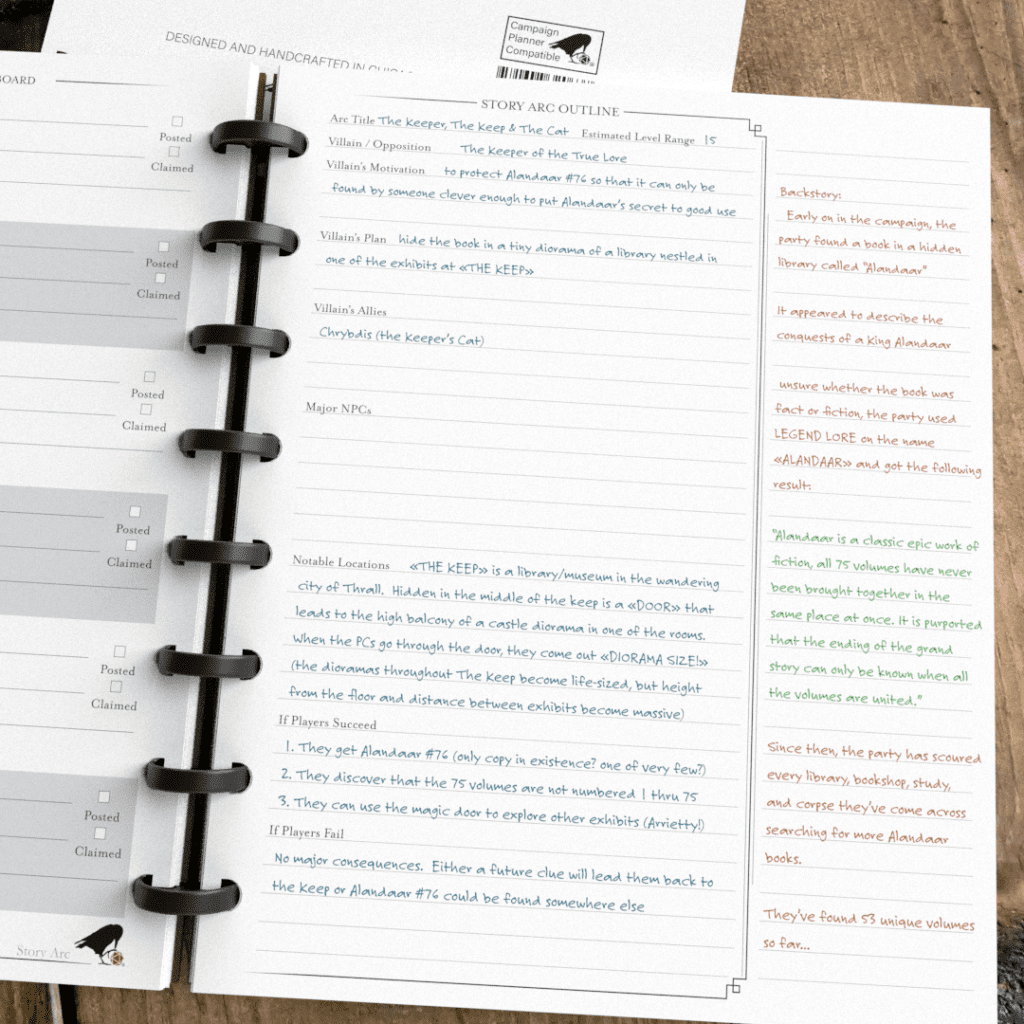 DESIGNED AND HANDCRAFTED IN
Campaign
Planner
Compatible
BOARD
Posted
Claimed
Posted
Claimed
Posted
Claimed
Posted
Claimed
Posted
Claimed
Posted
Claimed
Story Arc
STORY ARC OUTLINE
Arc Title The Keeper, The Keep & The Cat Estimated Level Range 15
Villain / Opposition The Keeper of the True Lore
Villain's Motivation to protect Alandaar #76 so that it can only be
found by someone clever enough to put Alandaar's secret to good use
Villain's Plan hide the book in a tiny diorama of a library nestled in
one of the exhibits at «THE KEEP»
Villain's Allies
Chrybdis (the Keeper's Cat)
Major NPCs
Notable Locations «THE KEEP» is a library/museum in the wandering
city of Thrall. Hidden in the middle of the keep is a «DOOR» that
leads to the high balcony of a castle diorama in one of the rooms.
When the PCs go through the door, they come out «DIORAMA SIZE!»
(the dioramas throughout The Keep become life-sized, but height
from the floor and distance between exhibits become massive)
If Players Succeed
1. They get Alandaar #76 (only copy in existence? one of very few?)
2. They discover that the 75 volumes are not numbered 1 thru 75
3. They can use the magic door to explore other exhibits (Arrietty!)
If Players Fail
No major consequences. Either a future clue will lead them back to
the keep or Alandaar #76 could be found somewhere else
Backstory:
Early on in the campaign, the
party found a book in a hidden
library called "Alandaar"
It appeared to describe the
conquests of a King Alandaar
unsure whether the book was
fact or fiction, the party used
LEGEND LORE on the name
«ALANDAAR» and got the following
result:
"Alandaar is a classic epic work of
fiction, all 75 volumes have never
been brought together in the
same place at once. It is purported
that the ending of the grand
story can only be known when all
the volumes are united."
Since then, the party has scoured
every library, bookshop, study,
and corpse they've come across
searching for more Alandaar
books.
They've found 53 unique volumes
so far...